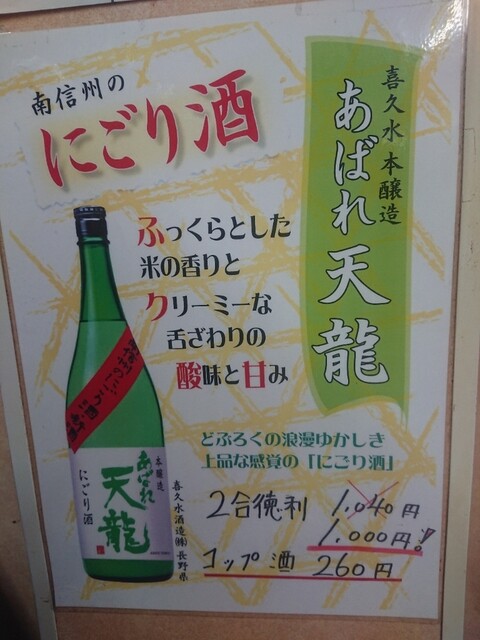 南信州の
にごり酒
喜久水本醸造
あばれ天龍
ふっくらとした
米の香りと
クリーミーな
舌ざわりの
酸味と甘み
どぶろくの浪漫ゆかしき
上品な感覚の「にごり酒」
2合徳利 1,040円
1,000円!
コップ酒 260円
本醸造
あばれ
天龍
にごり酒
喜久水酒造㈱長野県